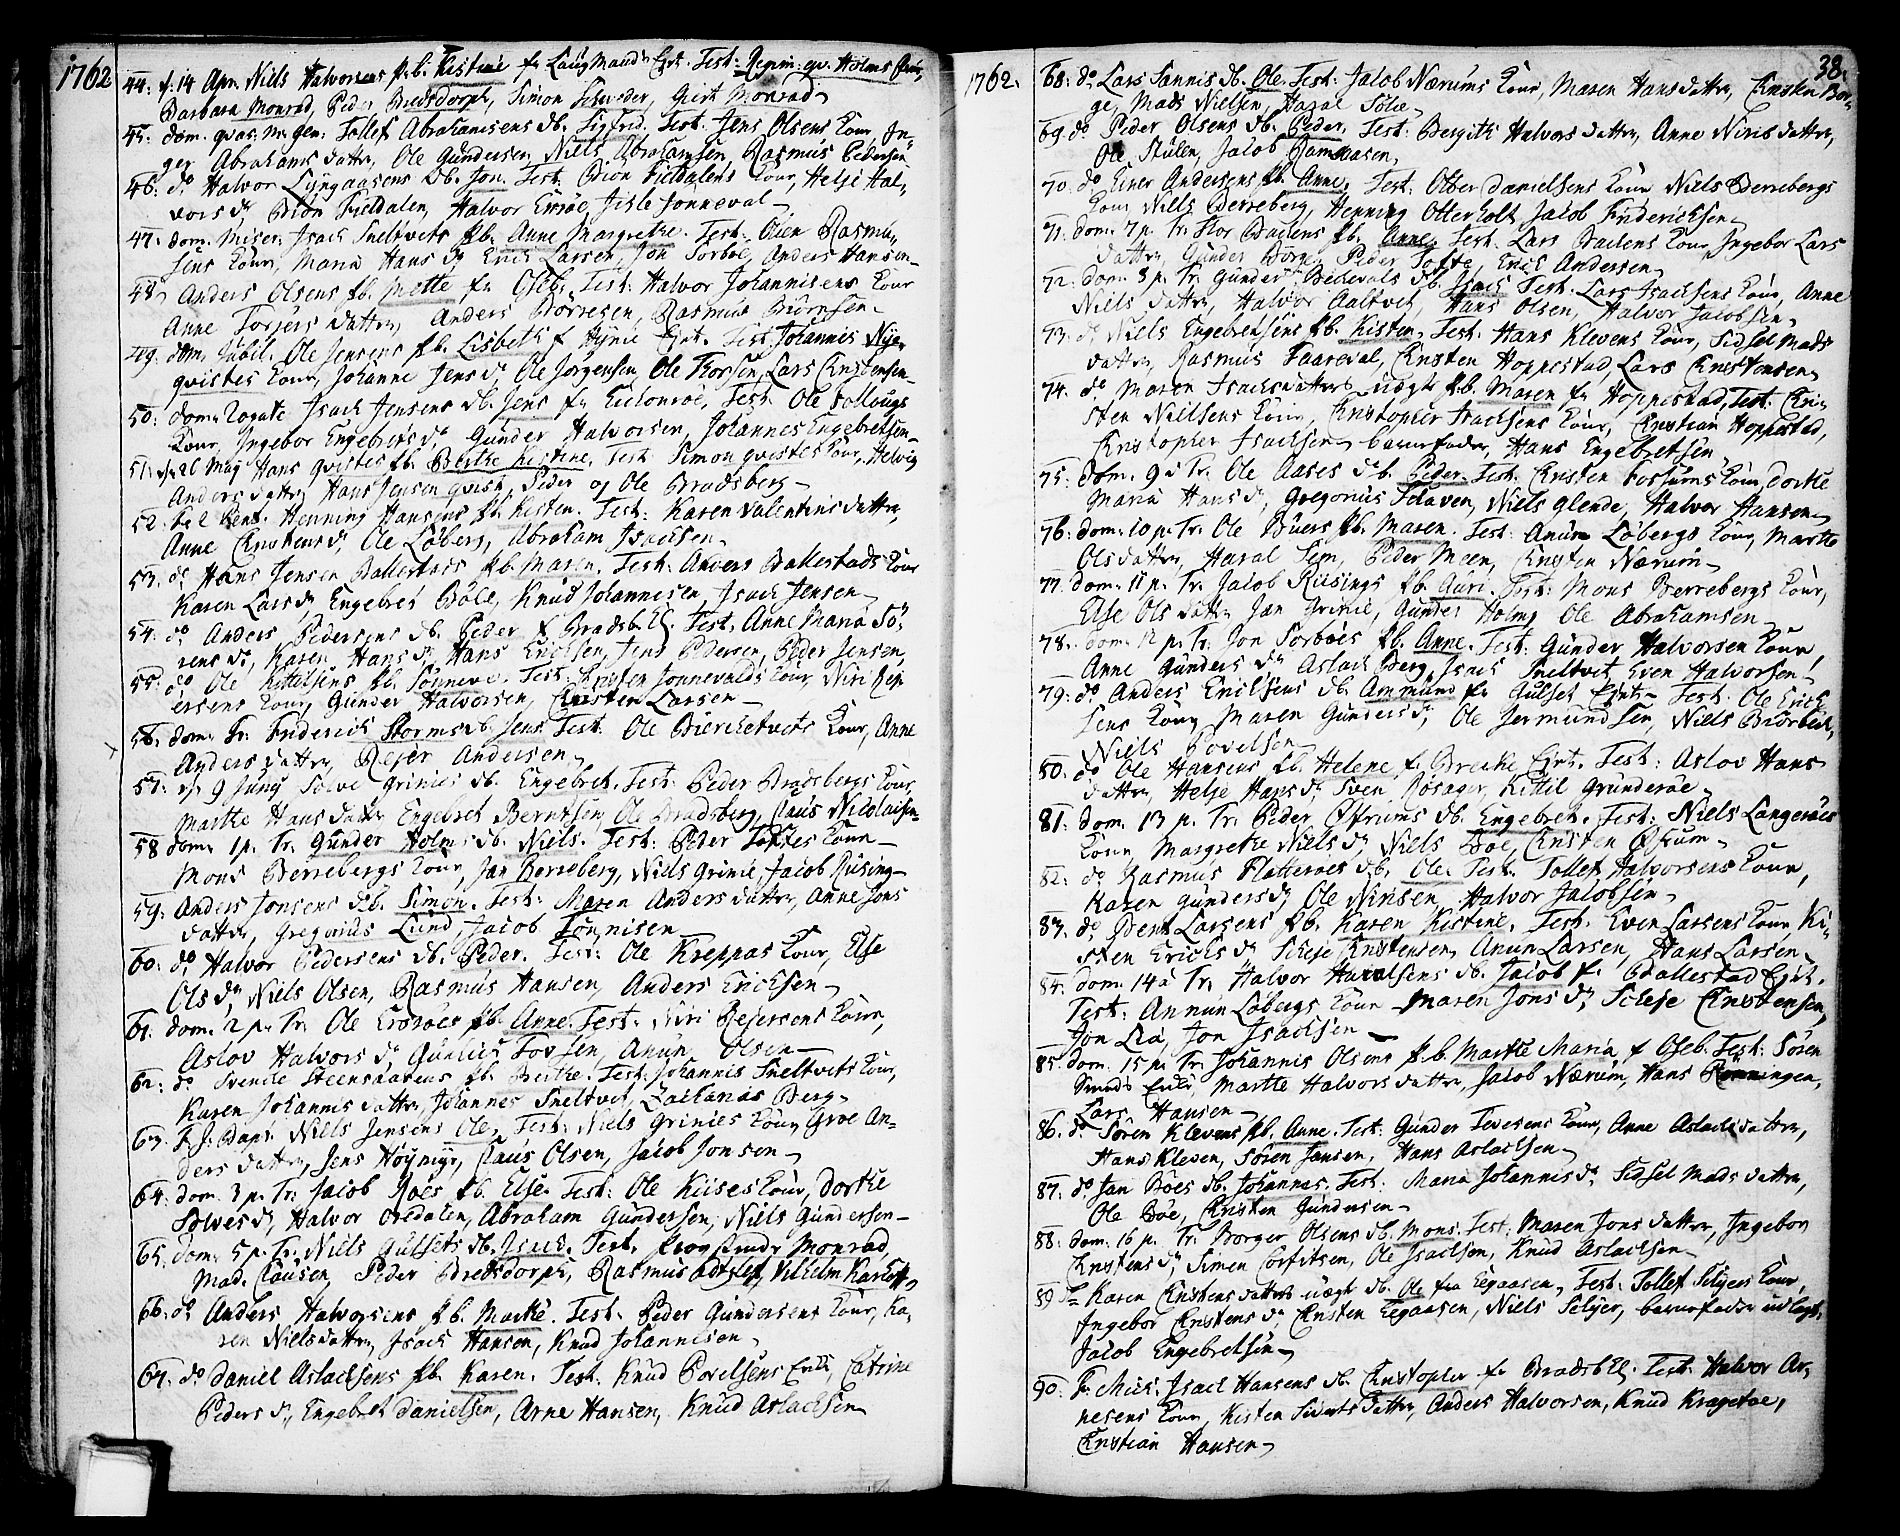 1762.
44. d. 14 Apr. Niels Halvorsens pb. Kistine fr Laugmands Ejet. Test: Regim. qv. Holms Frue,
Barbara Monrad, Peder Bredsdorph, Simon Schrøder, Giert Monrad
45. dom. quas. m. gen: Tollef Abrahamsens db. Sigfred. Test. Jens Olsens Kone, In-
ger Abrahams datter, Ole Gundersen, Niels Abrahamsen, Rasmus Pedersen
46. do Halvor Lyngaasens db. Jon. Test. Brion Fieldalens Kone, Helje Hal-
vors dr, Brion Fieldalen, Halvor Ersøe, Jisle Jonneval
47. dom. Miser: Isach Sneltvets pb. Anne Margrethe. Test: Olien Rasmu-
sens Kone, Maria Hans dr Erich Larsen, Jon Sorboe, Anders Hansen
48. Anders Olsens pb. Mette fr Oseb. Test: Halvor Johannisens Kone
Anne Torgers datter, Anders Børresen, Rasmus Biørnsen
49. dom. Jubil. Ole Jensens pb. Lisbeth f Hynie Ejet. Test: Johannis Nye-
qvistes Kone, Johanne Jens dr Ole Jørgensen, Ole Thorsen, Lars Christensen
50. dom. Rogate Isach Jensens db. Jens fr Eichonroe, Test. Ole Follougs
Kone, Ingebor Engebrets dr Gunder Halvorsen, Johannes Engebretsen
51. d. 26 Maj Hans qvistes pb. Berthe Kistine. Test Simon qvistes Kone, Helvig
Anders datter, Hans Jensen qvist, Peder og Ole Bradsberg
52. fer. 2 Pent. Henning Hansens pb. Kisten. Test: Karen Valentins datter,
Anne Christens dr, Ole Løberg, Abraham Isachsen
53. do Hans Jensen Ballestads pb. Maren. Test: Anders Ballestads Kone
Karen Lars dr, Engebret Bøle, Knud Johannesen, Isach Jensen
54. do Anders Pedersens db. Peder f Bradsb. Ej. Test. Anne Maria So-
rens dr, Karen Hans dr Hans Erichsen, Jens Pedersen, Peder Jensen,
55. do Ole Kittilsens pb. Sønneve. Test: Christen Jonnevalds Kone, Niri Rej-
ersens Kone, Gunder Halvorsen, Christen Larsen
56. dom. Tr. Friderich Storms db. Jens. Test: Ole Bierchetvets Kone, Anne
Anders datter, Rejer Andersen
57. d. 9 Junij Solve Grinies db. Engebret. Test: Peder Bradsbergs Kone,
Marthe Hans datter Engebret Berntsen, Ole Bradsberg, Claus Nicolaisen
58 dom. 1 p. Tr. Gunder Holms db. Niels. Test: Peder Toftes Kone
Mons Berrebergs Kone, Jan Berreberg, Niels Grinie, Jacob Riising
59. Anders Jonsens db. Simon. Test: Maren Anders datter, Anne Jons
datter, Gregorius Lund, Jacob Tonnisen
60. do Halvor Pedersens db. Peder. Test: Ole Kreppas Kone, Else
Ols dr, Niels Olsen, Rasmus Hansen, Anders Erichsen
61. dom. 2 p. Tr. Ole Erøroes pb. Anne. Test: Niri Rejersens Kone,
Aslov Halvors dr Gunlich Tovsen, Anun Olsen
62. do Svenche Steensaasens pb. Berthe. Test. Johannis Sneltvets Kone,
Karen Johannis datter, Johannes Sneltvet, Zacharias Berg
63. F. J. Bapt. Niels Jensens Ole. Test: Niels Grinies Kone, Groe An-
ders datter, Jens Høymyr, Claus Olsen, Jacob Jonsen
64. dom. 3 p. Tr. Jacob Roes pb. Else. Test: Ole Kiises Kone, Dorthe
Solves dr, Halvor Oredalen, Abraham Gundersen, Niels Gundersen
65. dom. 5 p. Tr. Niels Gulsets db. Isach. Test. Monrad,
Mad. Clausen, Peder Bredsdorph, Rasmus Vilhelm
66. do Anders Halvorsens pb. Marthe. Test. Peder Gundersens Kone, Ka-
ren Nielsdatter, Isach Hansen, Knud Johannesen
67. do Daniel Aslachsens pb. Karen. Test. Knud Povelsens Enke, Catrine
Peders dr, Engebret Danielsen, Arne Hansen, Knud Aslachsen
1762.
38.
68. do Lars Sannis db. Ole. Test: Jacob Nærums Kone, Maren Hansdatter, Christen Bor-
ge, Mads Nielsen, Haral Solie
69. do Peder Olsens db. Peder. Test: Bergith Halvors datter, Anne Niris datter,
Ole Stulen, Jacob Ramsaasen,
70. do Einer Andersens pb. Anne. Test: Otter Danielsens Kone Niels Berrebergs
Kone, Niels Berreberg, Henning Otterholt Jacob Friderichsen
71. dom. 7 p. Tr. Hlor Bachens pb. Anne. Test. Lars Bachens Kone, Ingebor Lars
datter, Gunder Børni, Peder Tofte, Erich Andersen
72. dom. 8 p. Tr. Gunder Bechevals db. Isach. Test. Lars Isachsens Kone, Anne
Niels datter, Halvor Aaltvet, Hans Olsen, Halvor Jacobsen
73. do Niels Engebretsens pb. Kisten. Test: Hans Klevens Kone, Sidsel Mads
datter, Rasmus Faareval, Christen Hoppestad, Lars Christensen
74. do Maren Isachsdatters uægte pb. Maren fr Hoppestad, Test: Chri-
sten Nielsens Kone, Christopher Isachsens Kone, Christian Hoppestad,
Christopher Isachsen, barnefader, Hans Engebretsen
75. dom. 9 p. Tr. Ole Aases db. Peder. Test. Christen Fossums Kone, Dorthe
Maria Hans dr, Gregorius Sclaven, Niels Glende, Halvor Hansen
76. dom. 10 p. Tr. Ole Buers pb. Maren. Test: Anun Løbergs Kone, Marthe
Olsdatter, Haral Sem, Peder Meen, Christen Nærum
77. dom. 11 p. Tr. Jacob Riisings pb. Auri. Test: Mons Berrebergs Kone,
Else Ols datter Jan Grinie, Gunder Holm, Ole Abrahamsen
78. dom. 12 p. Tr. Jon Sorboes pb. Anne. Test: Gunder Halvorsen Kone,
Anne Gunders dr, Aslach Berg, Isach Sneltvet, Even Halvorsen
79. do Anders Erichsens db. Ammund fr Gulset Ejet. Test: Ole Erich-
sens Kone, Maren Gunders dr, Ole Jermundsen, Niels Biørbech,
Niels Povelsen
80. do Ole Hansens pb. Helene f. Breche Ejet. Test: Aslov Hans
datter, Helje Hans dr, Sven Røsager, Kittil Grunderøe
81. dom. 13 p. Tr. Peder Øfrums db. Engebret. Test: Niels Langerøes
Kone, Margrethe Niels dr Niels Boe, Christen Øfrum
82. do Rasmus Flatterøes db. Ole. Test. Tollef Halvorsens Kone,
Karen Gunders dr, Ole Nirisen, Halvor Jacobsen
83. do Bent Larsens pb. Karen Kistine. Test: Even Larsens Kone Ki-
sten Erichs dr, Schese Christensen, Anun Larsen, Hans Larsen
84. dom. 14 p. Tr. Halvor Haralsens db. Jacob f. Ballestad Ejet.
Test: Annun Løbergs Kone Maren Jons dr, Schese Christensen,
Jon Lia, Jon Isachsen
85. dom. 15 p. Tr. Johannis Olsens pb. Marthe Maria f Oseb. Test: Søren
Smeds Enke, Marthe Halvors datter, Jacob Nærum, Hans Rønningen,
Lars Hansen
86. do Søren Klevens pb. Anne. Test: Gunder Tevesens Kone, Anne Aslachsdatter,
Hans Kleven, Søren Jansen, Hans Aslachsen
87. do Jan Boes db. Johannes. Test: Maria Johannis dr, Sidsel Mads datter,
Ole Boe, Christen Gundersen
88. dom. 16 p. Tr. Børger Olsens db. Mons. Test: Maren Jons datter, Ingebor
Christens dr, Simen Corfitsen, Ole Isachsen, Knud Aslachsen
89. do Karen Christensdatters uægt db. Ole fra Eegaasen, Test: Tollef Seljers Kone,
Ingebor Christens dr Christen Eegaasen, Niels Seljer, barnefader udlagt,
Jacob Engebretsen
90. F. Mich. Isach Hansens db. Christopher fr Bradsb. Ej. Test: Halvor Ar-
nesens Kone, Kisten Siverts datter, Anders Halvorsen, Knud Kragetoe,
Christian Hansen